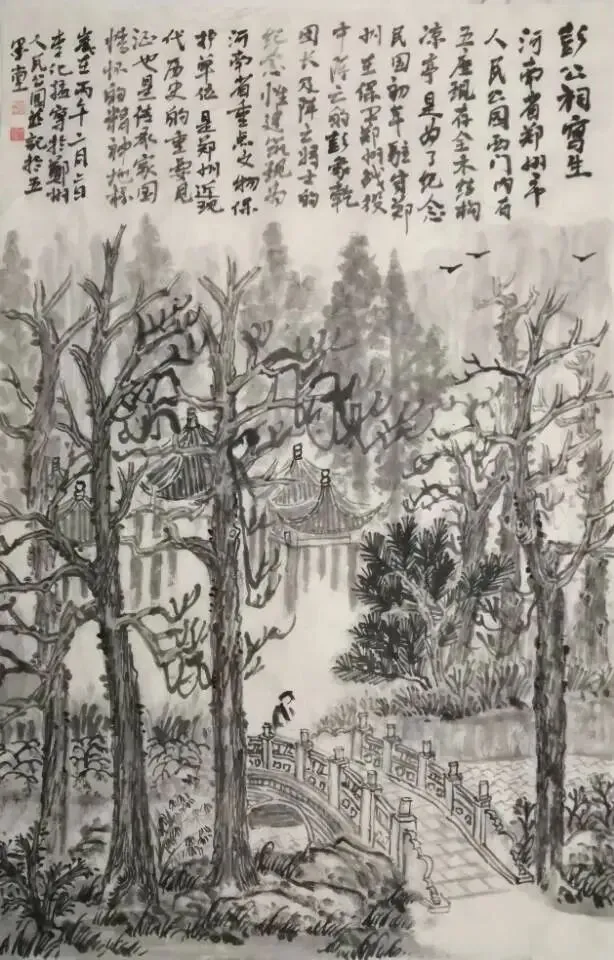 彭公祠写生
河南省郑州市
人民公园西门内有
五座现存全木结构
凉亭是为了纪念
民国初年驻守郑
州在保卫郑州战役
中阵亡的彭象乾
团长及阵亡将士的
纪念性建筑现为
河南省重点文物保
护单位是郑州近现
代历史的重要见
证也是传承家国
情怀的精神地标
岁在丙午二月
李记猛写于郑州
人民公园并记于五
墨堂